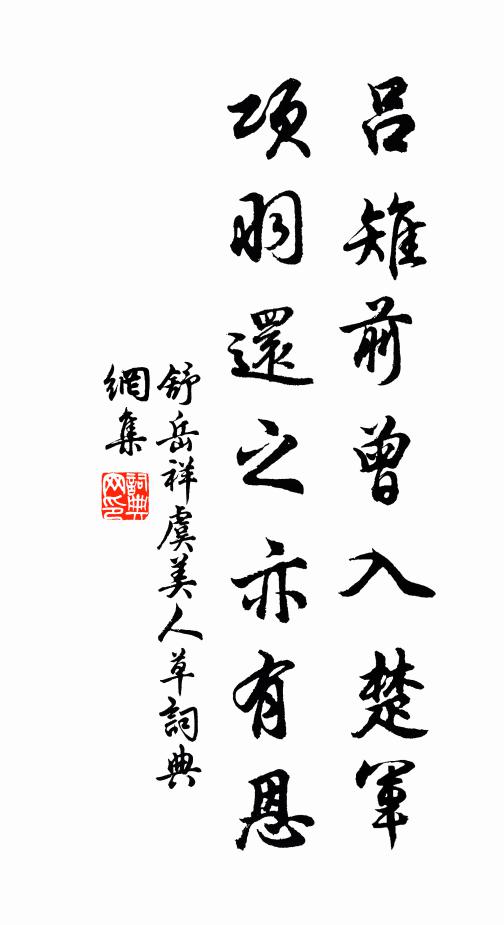 吕雉前曾入楚軍
項羽還之亦有恩
舒岳祥虞美人草詞典
網集
詞典
网印